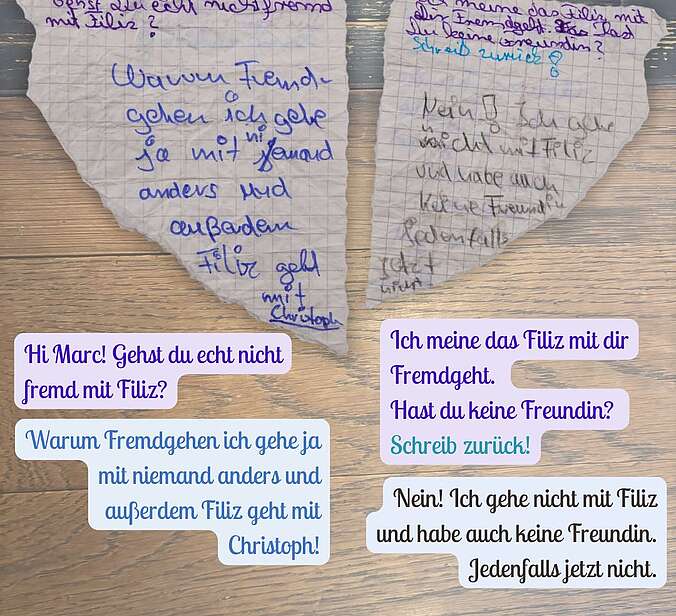 Gehst du echt nicht fremd
mit Filiz?
Warum Fremd-
gehen ich gehe
ja mit niemand
anders und
außerdem
Filiz geht
mit
Christoph
meine das Filiz mit
dir Fremdgeht. Hast
du keine Freundin?
Schreib zurück!
Nein! Ich gehe
nicht mit Filiz
und habe auch
keine Freundin
Jedenfalls
jetzt
nicht
Hi Marc! Gehst du echt nicht
fremd mit Filiz?
Warum Fremdgehen ich gehe ja
mit niemand anders und
außerdem Filiz geht mit
Christoph!
Ich meine das Filiz mit dir
Fremdgeht.
Hast du keine Freundin?
Schreib zurück!
Nein! Ich gehe nicht mit Filiz
und habe auch keine Freundin.
Jedenfalls jetzt nicht.